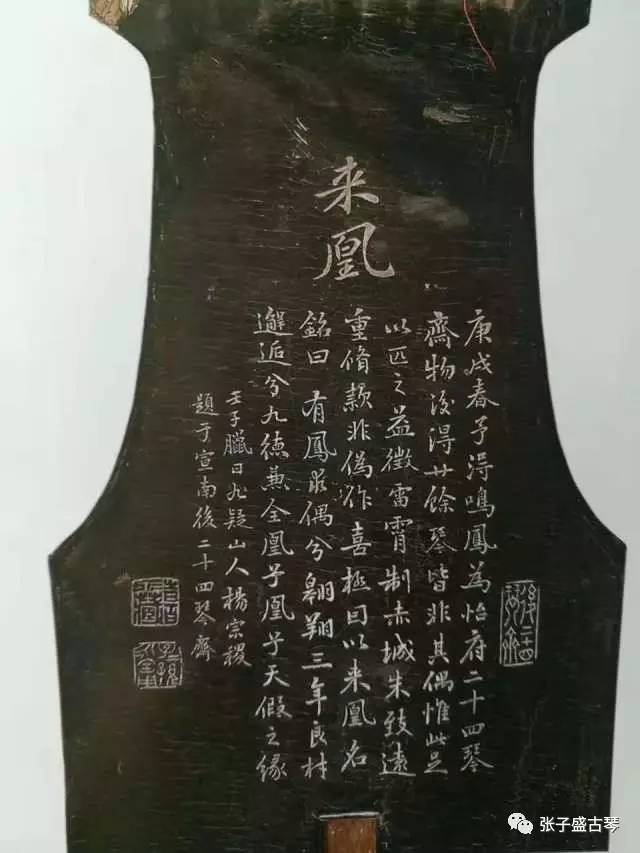 来凰
庚戌春予得鳴鳳為怡府二十四琴
齋物後得廿餘琴皆非其偶惟此足
以匹之益徵雷霄制赤城朱致遠
重脩款非僞作喜極曰以来凰名
銘曰 有鳳求偶兮翱翔三年良材
邂逅兮九德兼全凰兮凰兮天假之緣
壬子臘日九疑山人楊宗稷
題于宣南後二十四琴齋
张子盛古琴